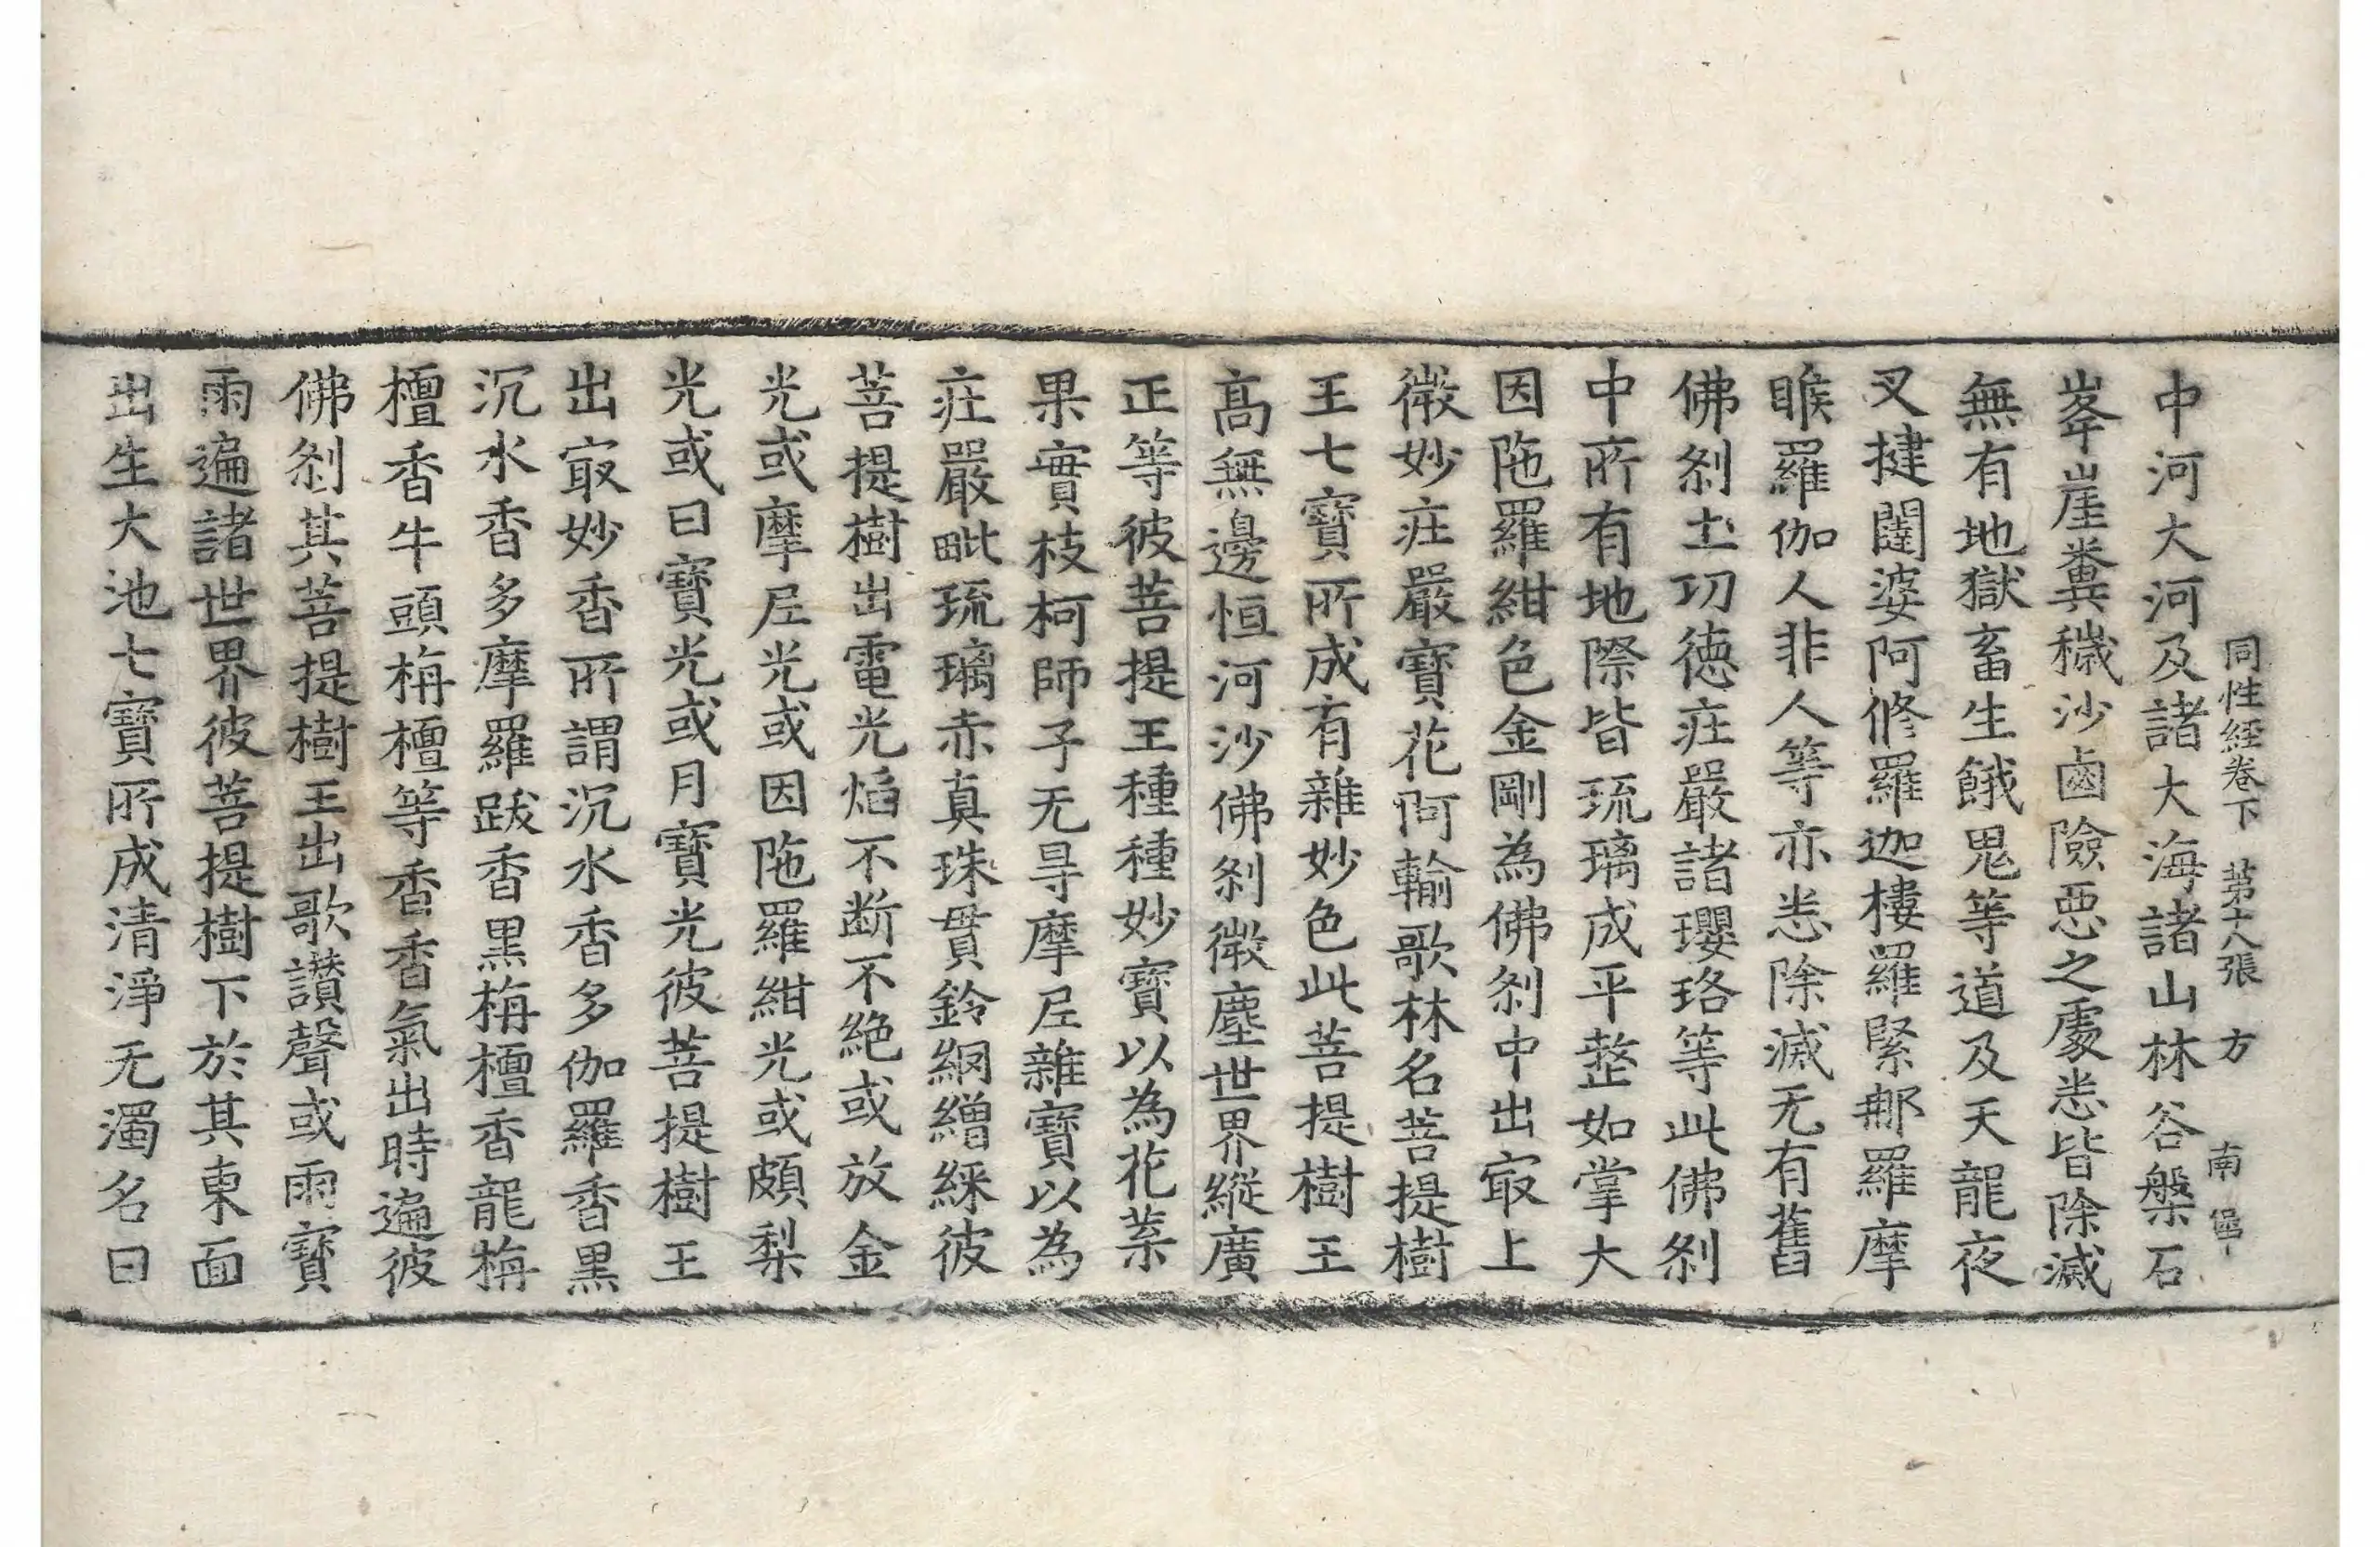 同性経卷下 第十八張 方 南
中河大河及諸大海諸山林谷槃石
峯崖糞穢沙鹵險惡之處悉皆除滅
無有地獄畜生餓鬼等道及天龍夜
叉揵闥婆阿修羅迦樓羅緊那羅摩
睺羅伽人非人等亦悉除滅无有舊
佛剎土功德莊嚴諸瓔珞等此佛剎
中所有地際皆琉璃成平整如掌大
因陁羅紺色金剛為佛剎中出㝡上
微妙莊嚴寶花阿輸歌林名菩提樹
王七寶所成有雜妙色此菩提樹王
髙無邊恒河沙佛剎微塵世界縱廣
正等彼菩提王種種妙寶以為花菓
果實枝柯師子无㝵摩尼雜寶以為
莊嚴毗琉璃赤真珠貫鈴網繒綵彼
菩提樹出電光焰不断不絶或放金
光或摩尼光或因陁羅紺光或頗梨
光或日寶光或月寶光彼菩提樹王
出㝡妙香所謂沉水香多伽羅香黑
沉水香多摩羅跋香黑栴檀香龍栴
檀香牛頭栴檀等香香氣出時遍彼
佛剎其菩提樹王出歌讃聲或雨寶
雨遍諸世界彼菩提樹下於其東面
出生大池七寶所成清淨无濁名曰